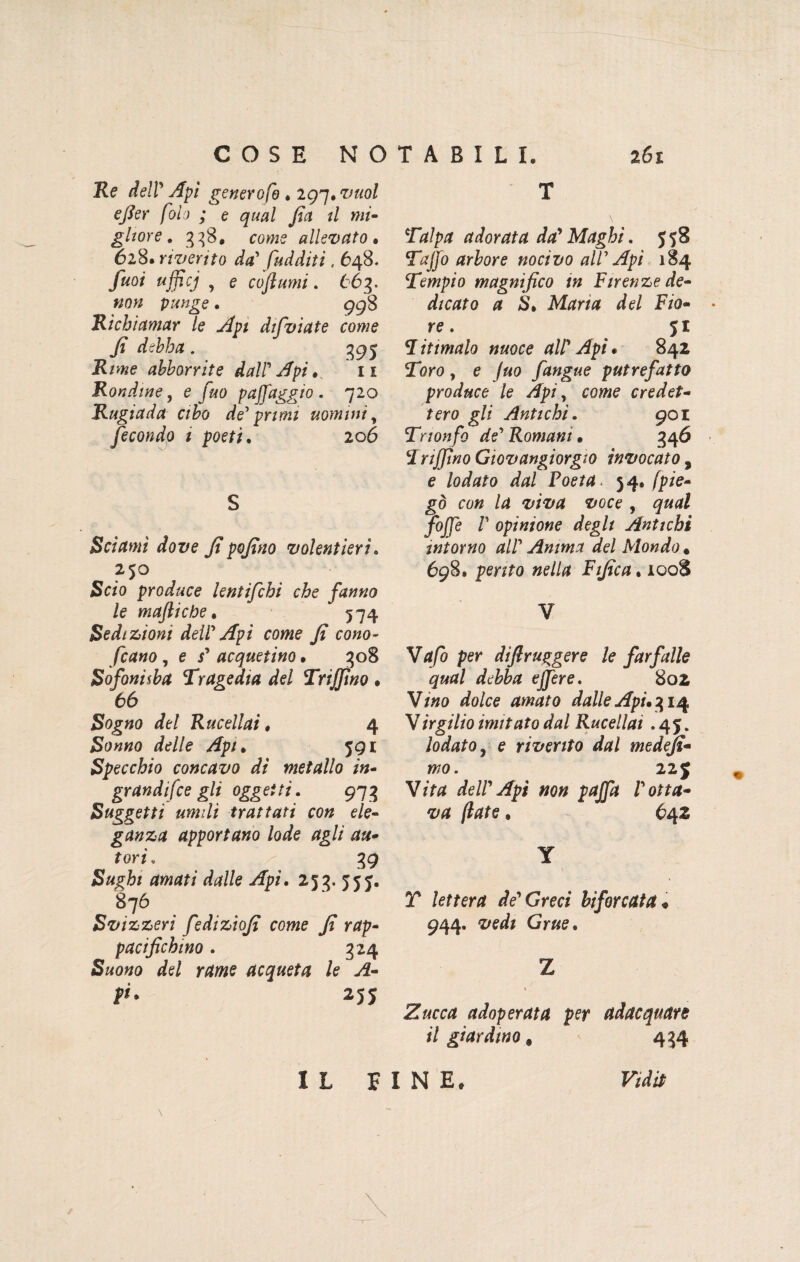 COSE NOTABILI. 261
Re dell' Api generoſo. 297. vuol
eſſer ſolo ; e qual ſia il mi-
gliore. 338. come allevato.
628. riverito da' ſudditi, 648.
ſuoi ufficj, e coſtumi. 663.
non punge. 998
Richiamar le Api diſviate come
ſi debba. 395
Rime abborrite dall' Api. 11
Rondine, e ſuo paſſaggio. 720
Rugiada cibo de' primi uomini,
ſecondo i poeti. 206
S
Sciami dove ſi poſino volentieri.
250
Scio produce lentiſchi che fanno
le maſtiche. 574
Sedizioni dell' Api come ſi cono-
ſcano, e s' acquetino. 308
Sofonisba Tragedia del Triſſino.
66
Sogno del Rucellai. 4
Sonno delle Api. 591
Specchio concavo di metallo in-
grandiſce gli oggetti. 973
Suggetti umili trattati con ele-
ganza apportano lode agli au-
tori. 39
Sughi amati dalle Api. 253. 555.
876
Svizzeri ſedizioſi come ſi rap-
pacifichino. 324
Suono del rame acqueta le A-
pi. 255
T
Talpa adorata da' Maghi. 558
Taſſo arbore nocivo all' Api 184
Tempio magnifico in Firenze de-
dicato a S. Maria del Fio-
re. 51
Titimalo nuoce all' Api. 842
Toro, e ſuo ſangue putrefatto
produce le Api, come credet-
tero gli Antichi. 901
Trionfo de' Romani. 346
Triſſino Giovangiorgio invocato,
e lodato dal Poeta. 54. ſpie-
gò con la viva voce, qual
foſſe l' opinione degli Antichi
intorno all' Anima del Mondo.
698. perito nella Fiſica. 1008
V
Vaſo per diſtruggere le farfalle
qual debba eſſere. 802
Vino dolce amato dalle Api. 314
Virgilio imitato dal Rucellai. 45.
lodato, e riverito dal medeſi-
mo. 225
Vita dell' Api non paſſa l' otta-
va ſtate. 642
Y
Y lettera de' Greci biforcata.
944. vedi Grue.
Z
Zucca adoperata per adacquare
il giardino. 434
IL FINE. Vidit